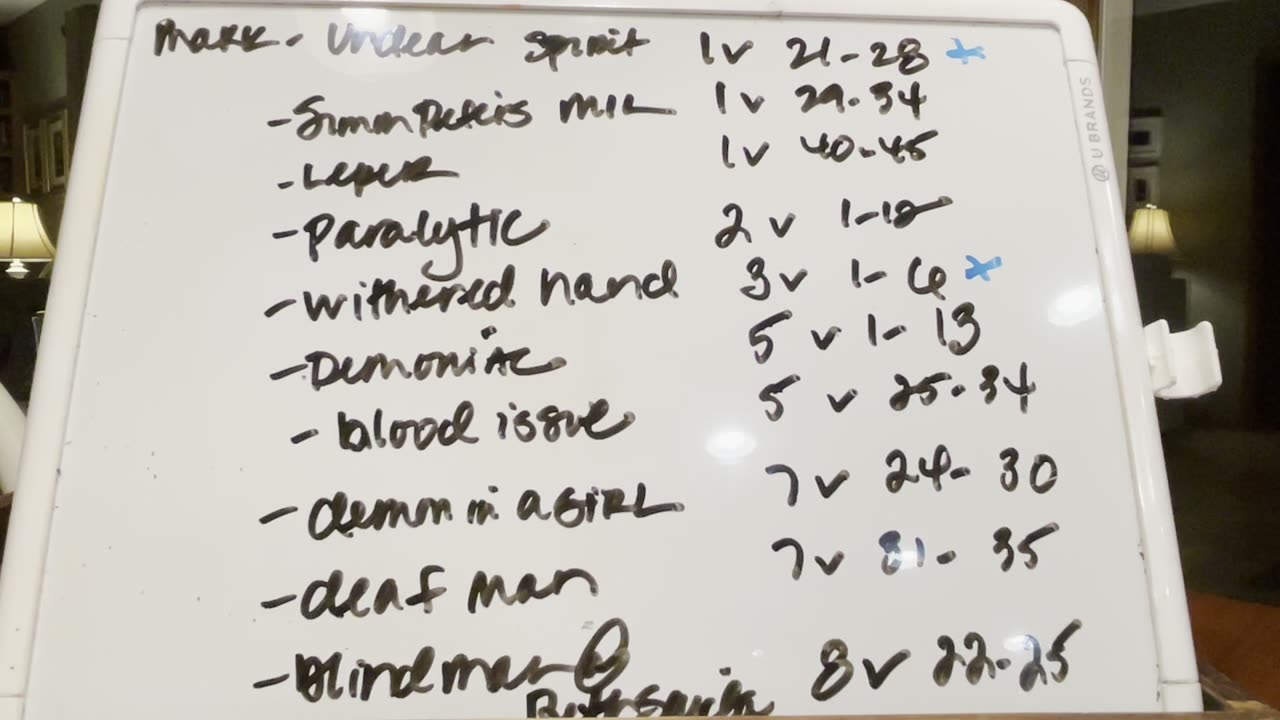 Mark - Unclean spirit 1v 21-28 *
- Simon Peter's MIL 1v 29-34
- Leper 1v 40-45
- Paralytic 2 v 1-12
- withered hand 3v 1-6 *
- Demoniac 5 v 1-13
- blood issue 5 v 25-34
- demon in a GIRL 7v 24-30
- deaf man 7v 31-35
- Blind man @ 8v 22-25
U BRANDS